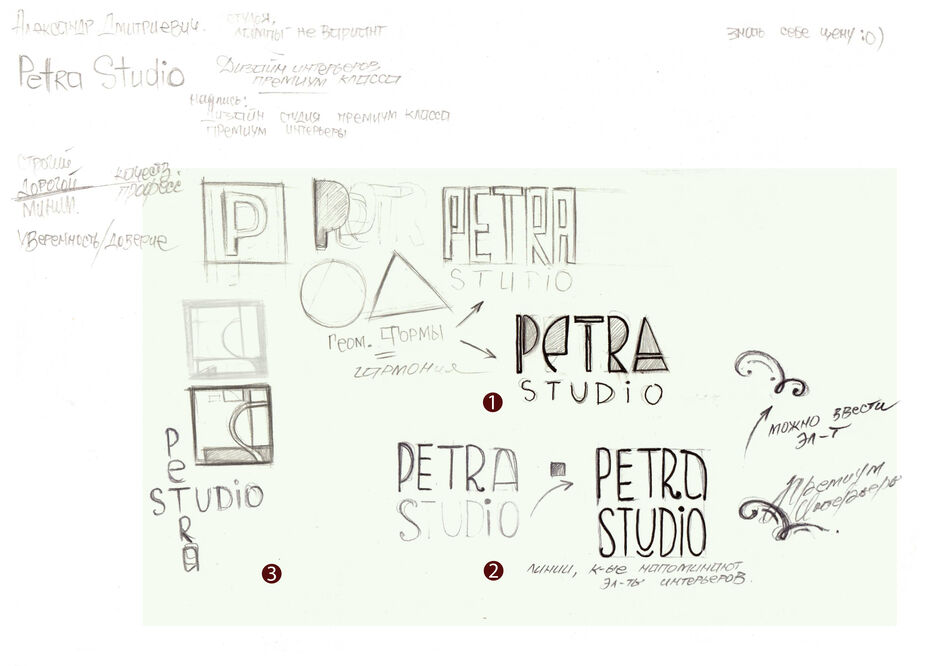 Александр Дмитриевич.
стулья,
лампы не вариант
знать себе цену :о)
Petra Studio
Дизайн интерьеров
премиум класса
надпись:
Дизайн студия премиум класса
премиум интерьеры
строгий
дорогой
миним.
качеств.
професс
уверенность/доверие
P
PETRA
STUDIO
Геом. формы
=
гармония
PETRA
STUDIO
1
можно ввести
эл-т
Премиум
Интерьеры
PETRA
STUDIO
PETRA
STUDIO
PETRA
STUDIO
3
2
линии, к-ые напоминают
эл-ты интерьеров.